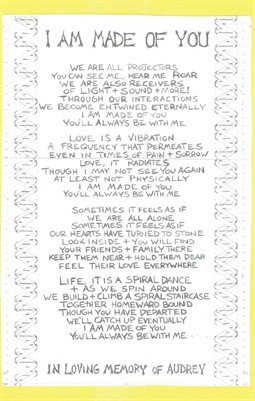 I AM MADE OF YOU
WE ARE ALL PROJECTORS
YOU CAN SEE ME, HEAR ME ROAR
WE ARE ALSO RECEIVERS
OF LIGHT + SOUND + MORE!
THROUGH OUR INTERACTIONS
WE BECOME ENTWINED ETERNALLY
I AM MADE OF YOU
YOU'LL ALWAYS BE WITH ME.
LOVE IS A VIBRATION
A FREQUENCY THAT PERMEATES
EVEN IN TIMES OF PAIN + SORROW
LOVE, IT RADIATES
THOUGH I MAY NOT SEE YOU AGAIN
AT LEAST NOT PHYSICALLY
I AM MADE OF YOU
YOU'LL ALWAYS BE WITH ME.
SOMETIMES IT FEELS AS IF
WE ARE ALL ALONE
SOMETIMES IT FEELS AS IF
OUR HEARTS HAVE TURNED TO STONE
LOOK INSIDE + YOU WILL FIND
YOUR FRIENDS + FAMILY THERE
KEEP THEM NEAR + HOLD THEM DEAR
FEEL THEIR LOVE EVERYWHERE
LIFE, IT IS A SPIRAL DANCE
+ AS WE SPIN AROUND
WE BUILD + CLIMB A SPIRAL STAIRCASE
TOGETHER HOMEWARD BOUND
THOUGH YOU HAVE DEPARTED
WE'LL CATCH UP EVENTUALLY
I AM MADE OF YOU
YOU'LL ALWAYS BE WITH ME...
IN LOVING MEMORY OF AUDREY